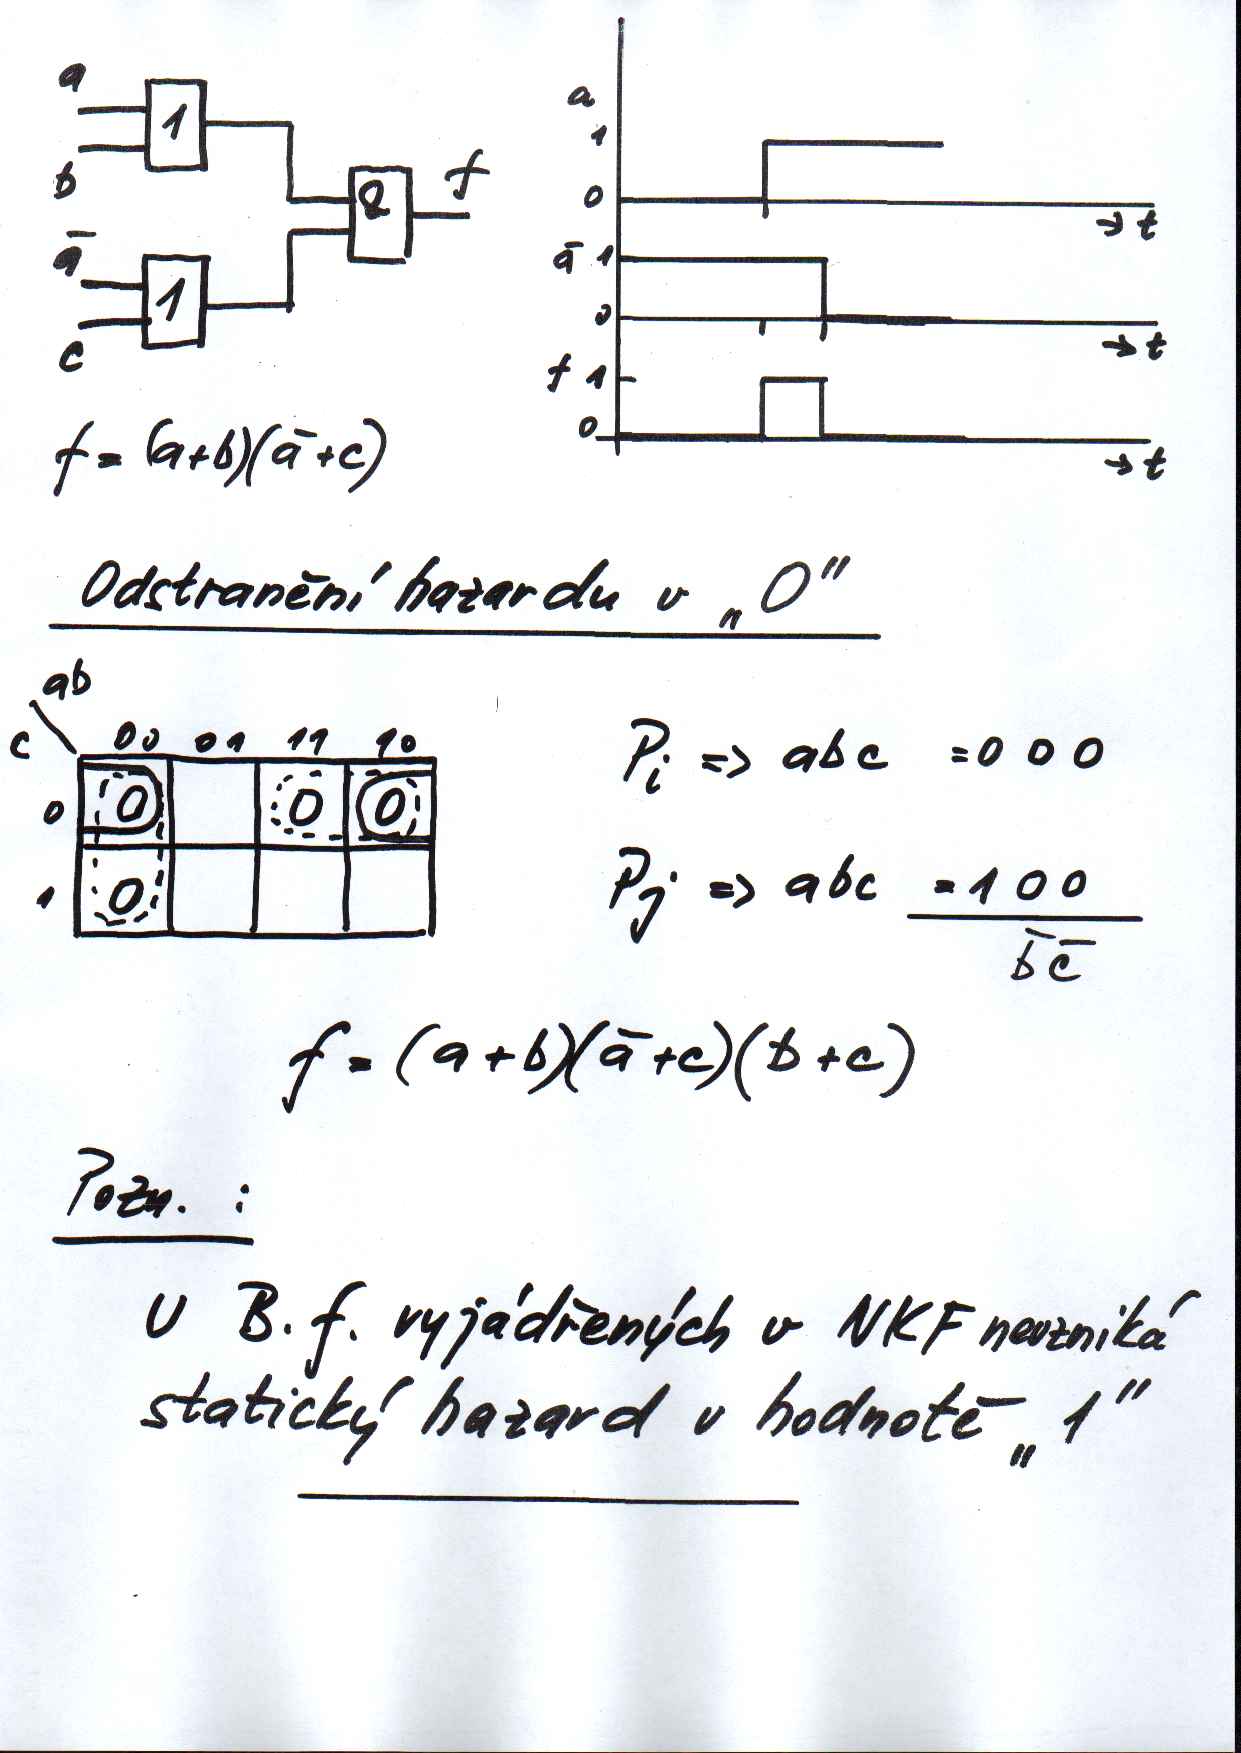 a
1
b
ā
1
c
&
f
f = (a+b)(ā+c)
a
1
0
→ t
ā 1
0
→ t
f 1
0
→ t
Odstranění hazardu v „0"
ab
c 00 01 11 10
0 0 0 0
1 0
Pi => abc = 0 0 0
Pj => abc = 1 0 0
b̄ c̄
f = (a+b)(ā+c)(b+c)
Pozn. :
U B.f. vyjádřených v NKF nevzniká
statický hazard v hodnotě „1"